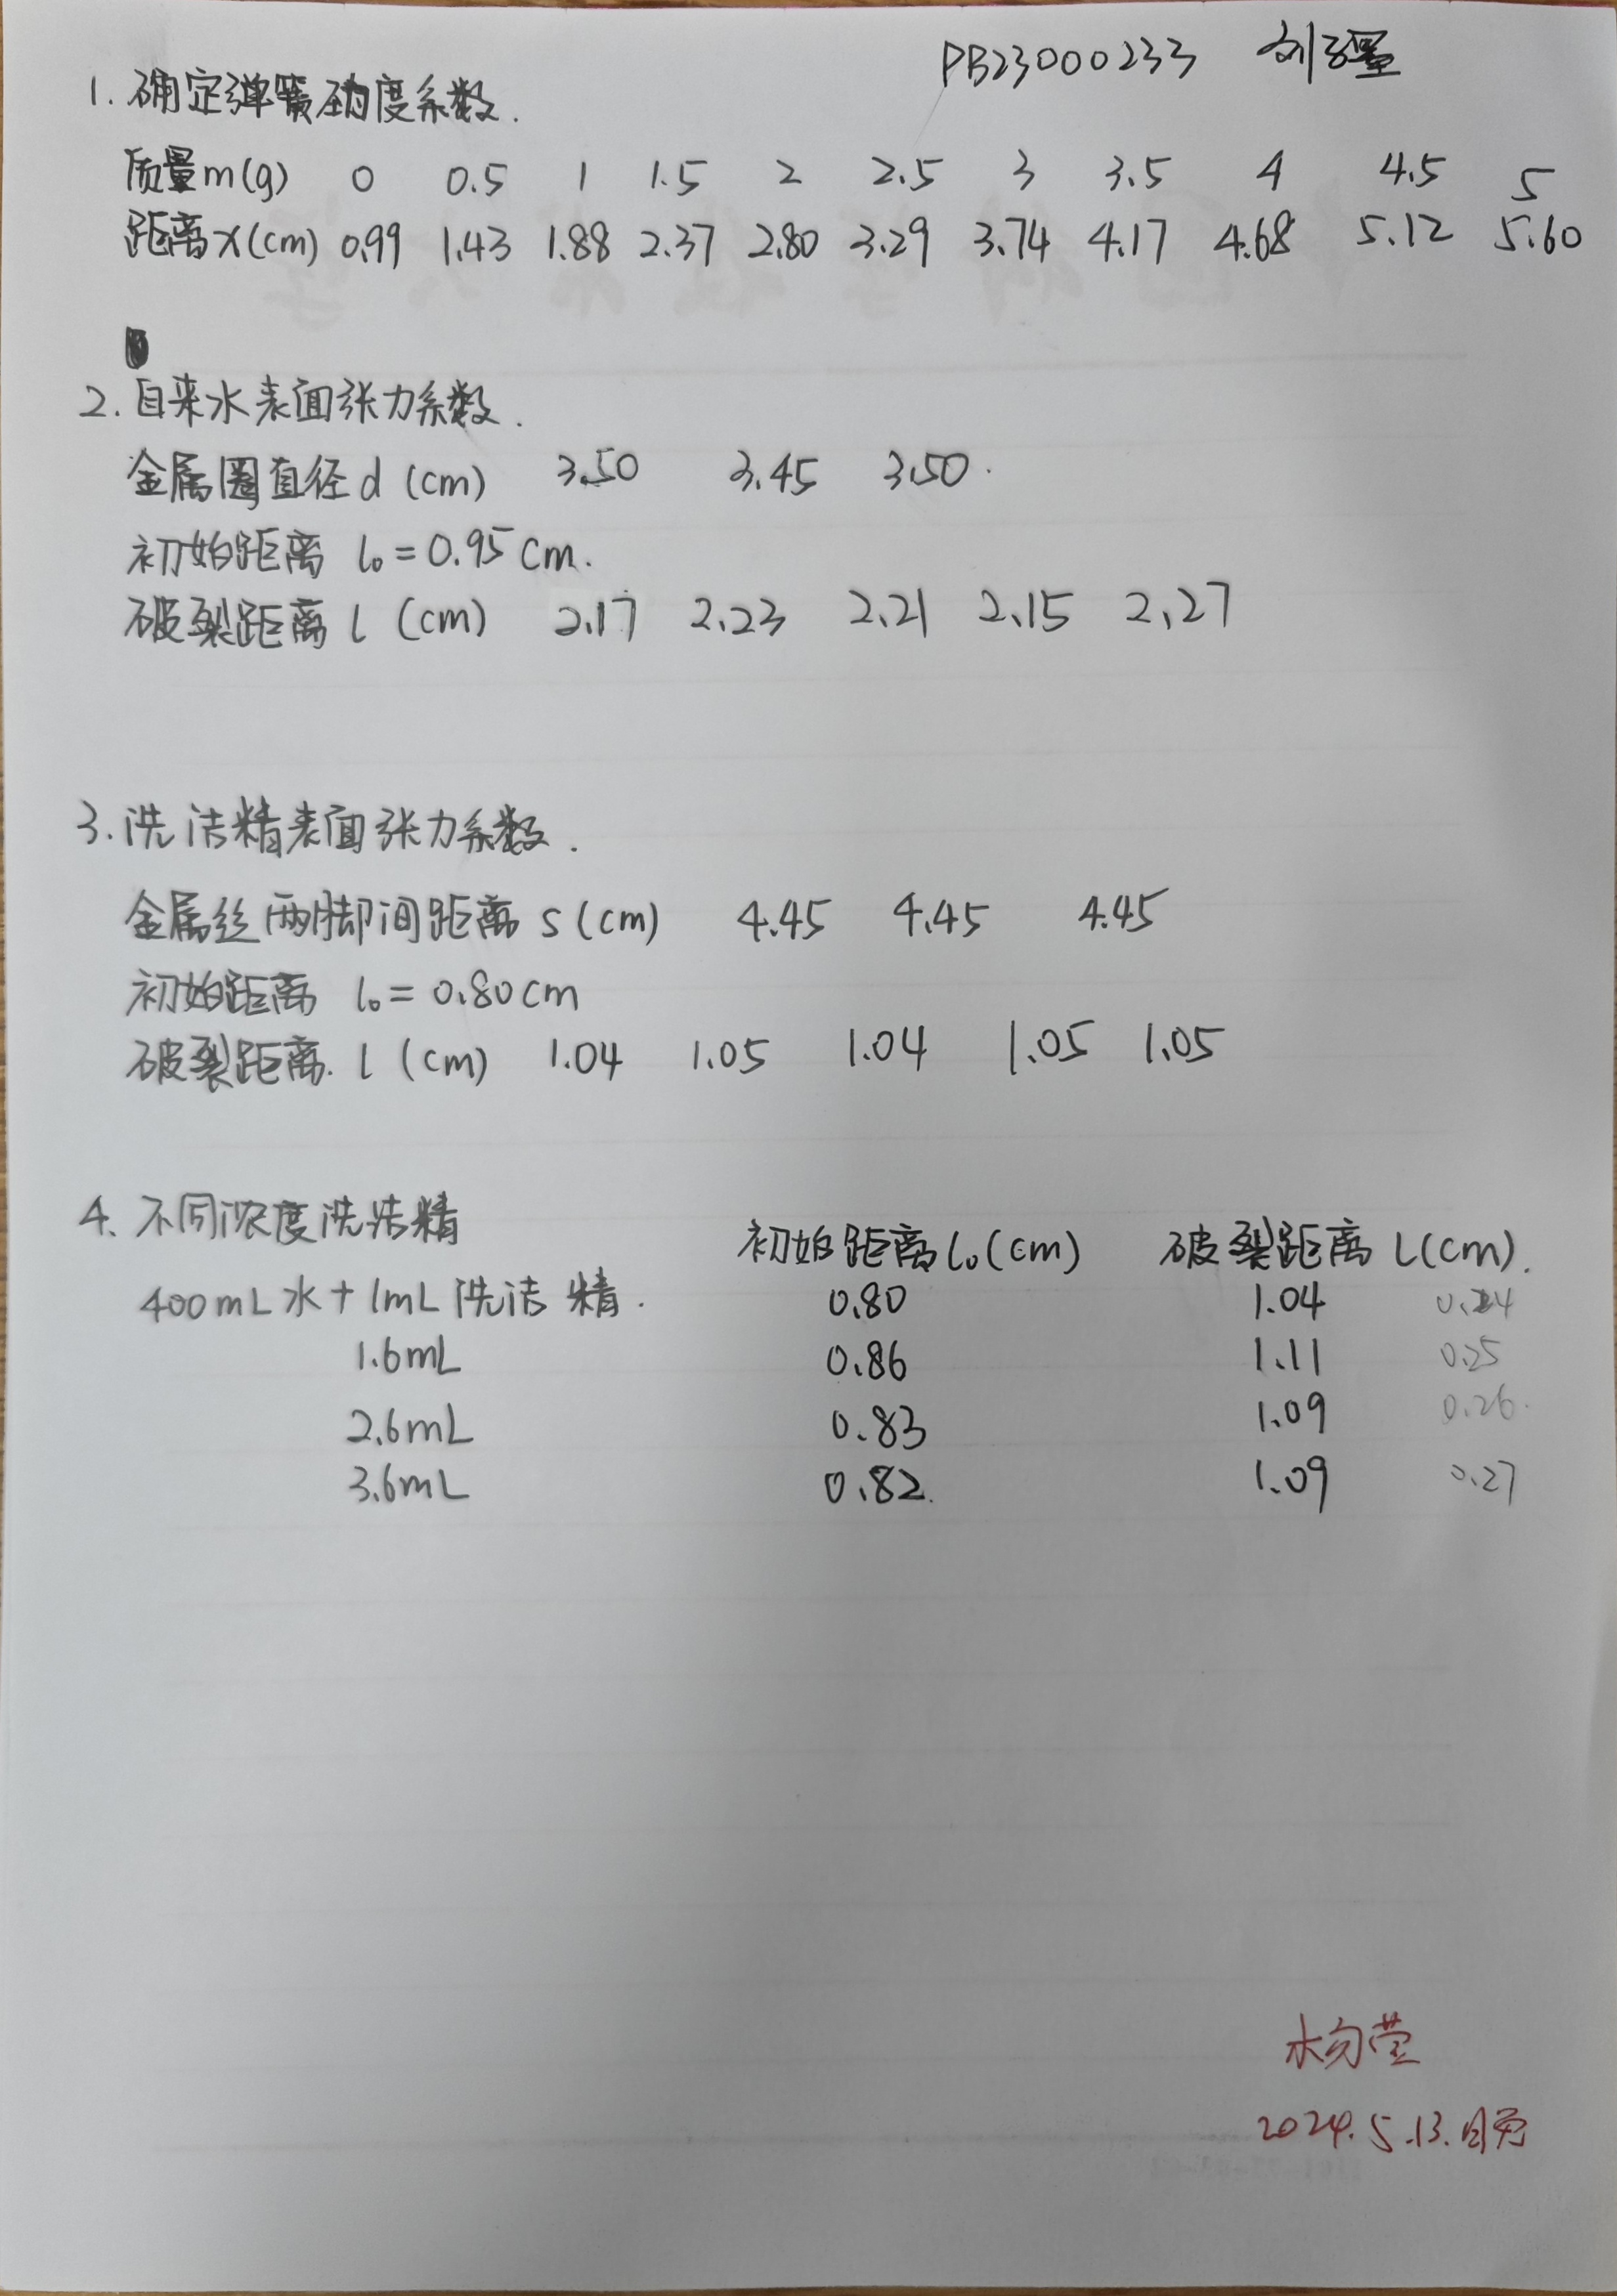 PB23000233 刘子墨
1. 确定弹簧劲度系数.
质量m(g) 0 0.5 1 1.5 2 2.5 3 3.5 4 4.5 5
距离x(cm) 0.99 1.43 1.88 2.37 2.80 3.29 3.74 4.17 4.68 5.12 5.60
2. 自来水表面张力系数.
金属圈直径d (cm) 3.50 3.45 3.50.
初始距离 l₀=0.95cm.
破裂距离 l (cm) 2.17 2.23 2.21 2.15 2.27
3. 洗洁精表面张力系数.
金属丝两脚间距离 s(cm) 4.45 4.45 4.45
初始距离 l₀=0.80cm
破裂距离. l (cm) 1.04 1.05 1.04 1.05 1.05
4. 不同浓度洗洁精
初始距离l₀(cm) 破裂距离 l(cm).
400mL水+1mL洗洁精. 0.80 1.04 0.24
1.6mL 0.86 1.11 0.25
2.6mL 0.83 1.09 0.26.
3.6mL 0.82. 1.09 0.27
杨莹
2024.5.13.